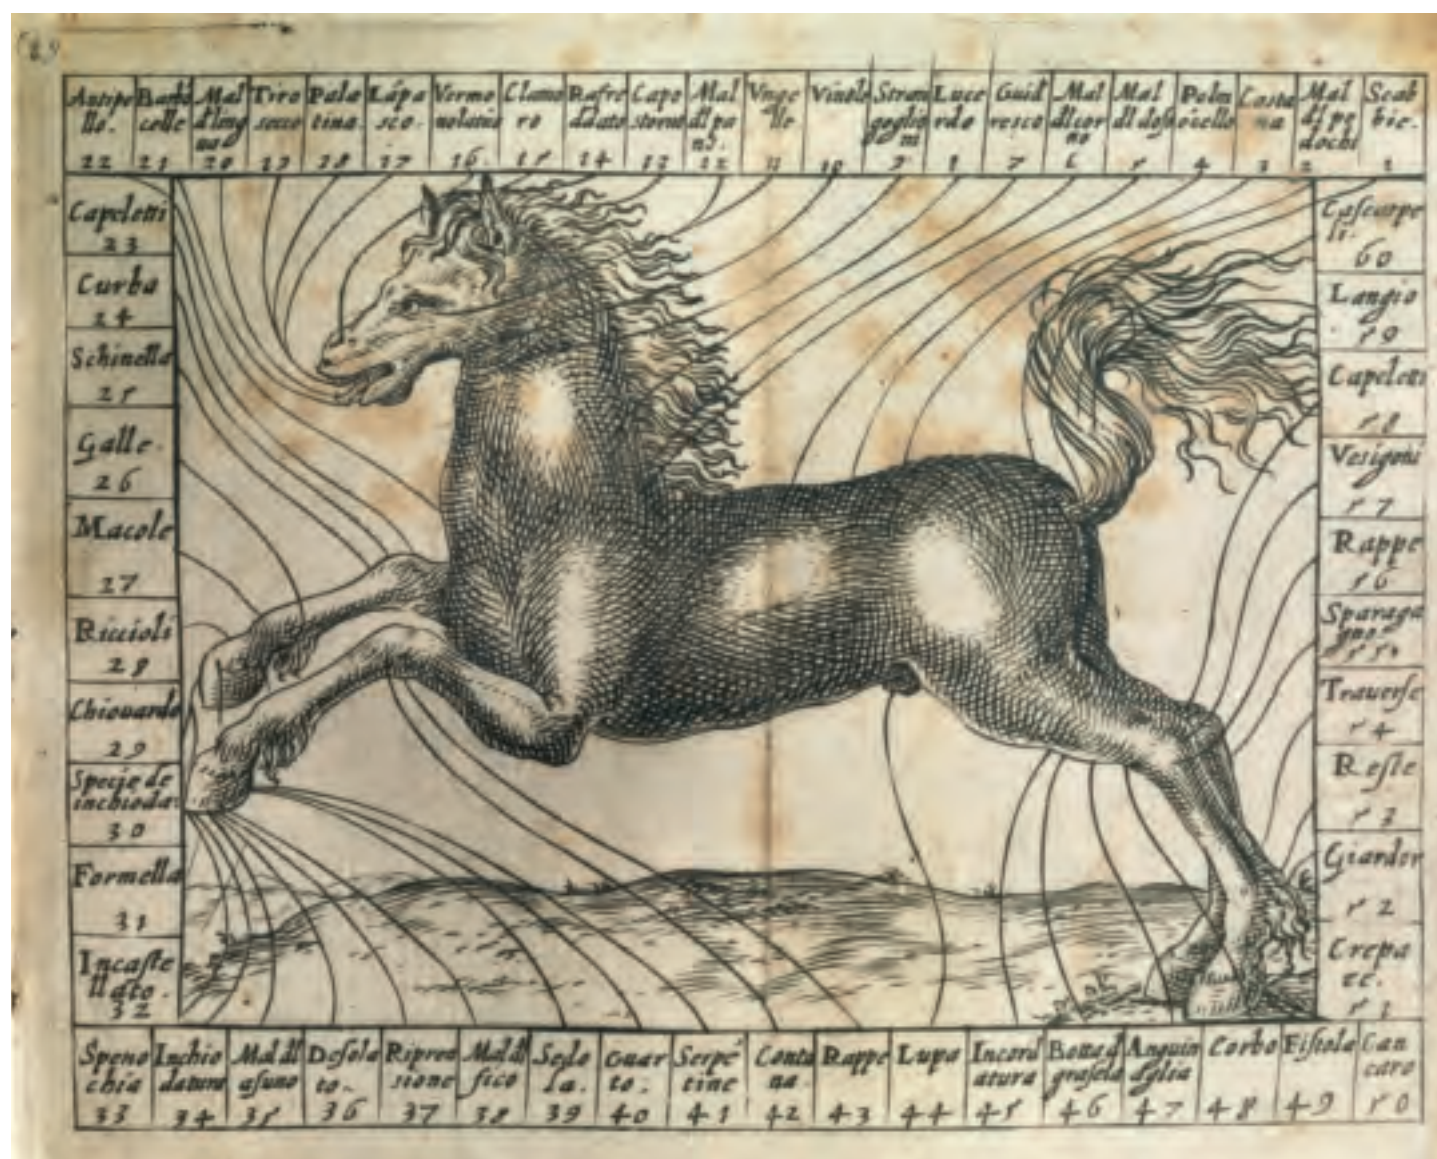 Barbo
celle
21
Mal
dl ling
ua
20
Tiro
secco
19
Pala
tina.
18
Lápa
sco.
17
Vermo
16.
Clamo
ro
15
Rafre
ddato
14
Capo
storno
13
Mal
dl pa
12
Vnge
lle
11
10
Stran
goglio
ni
9
Luce
rdo
8
Guid
resco
7
Mal
dl cor
no
6
Mal
5
4
Costa
na
3
Mal
dl pe
dochi
2
Scab
bie.
1
Capeletti
23
Curba
24
Schinella
25
Galle.
26
Macole
27
Riccioli
28
Chiouardo
29
Specie de
inchioda:
30
Formella
31
Incaste
llato.
32
60
Langio
59
Capeletti
58
Vesigoni
57
Rappe
56
Sparaga
gno.
55
Trauerse
54
Reste
53
Giardor
52
Crepa
cc.
51
Speno
chia
33
Inchio
datura
34
Mal dl
asuno
35
Desola
to.
36
Ripren
sione
37
Mal dl
fico
38
Sedo
la.
39
Quar
to.
40
Serpē
tine
41
Conta
na.
42
Rappe
43
Lupa
44
Incord
atura
45
Botta d
grasela
46
Anguin
aglia
47
Corbo
48
Fistola
49
Can
caro
50